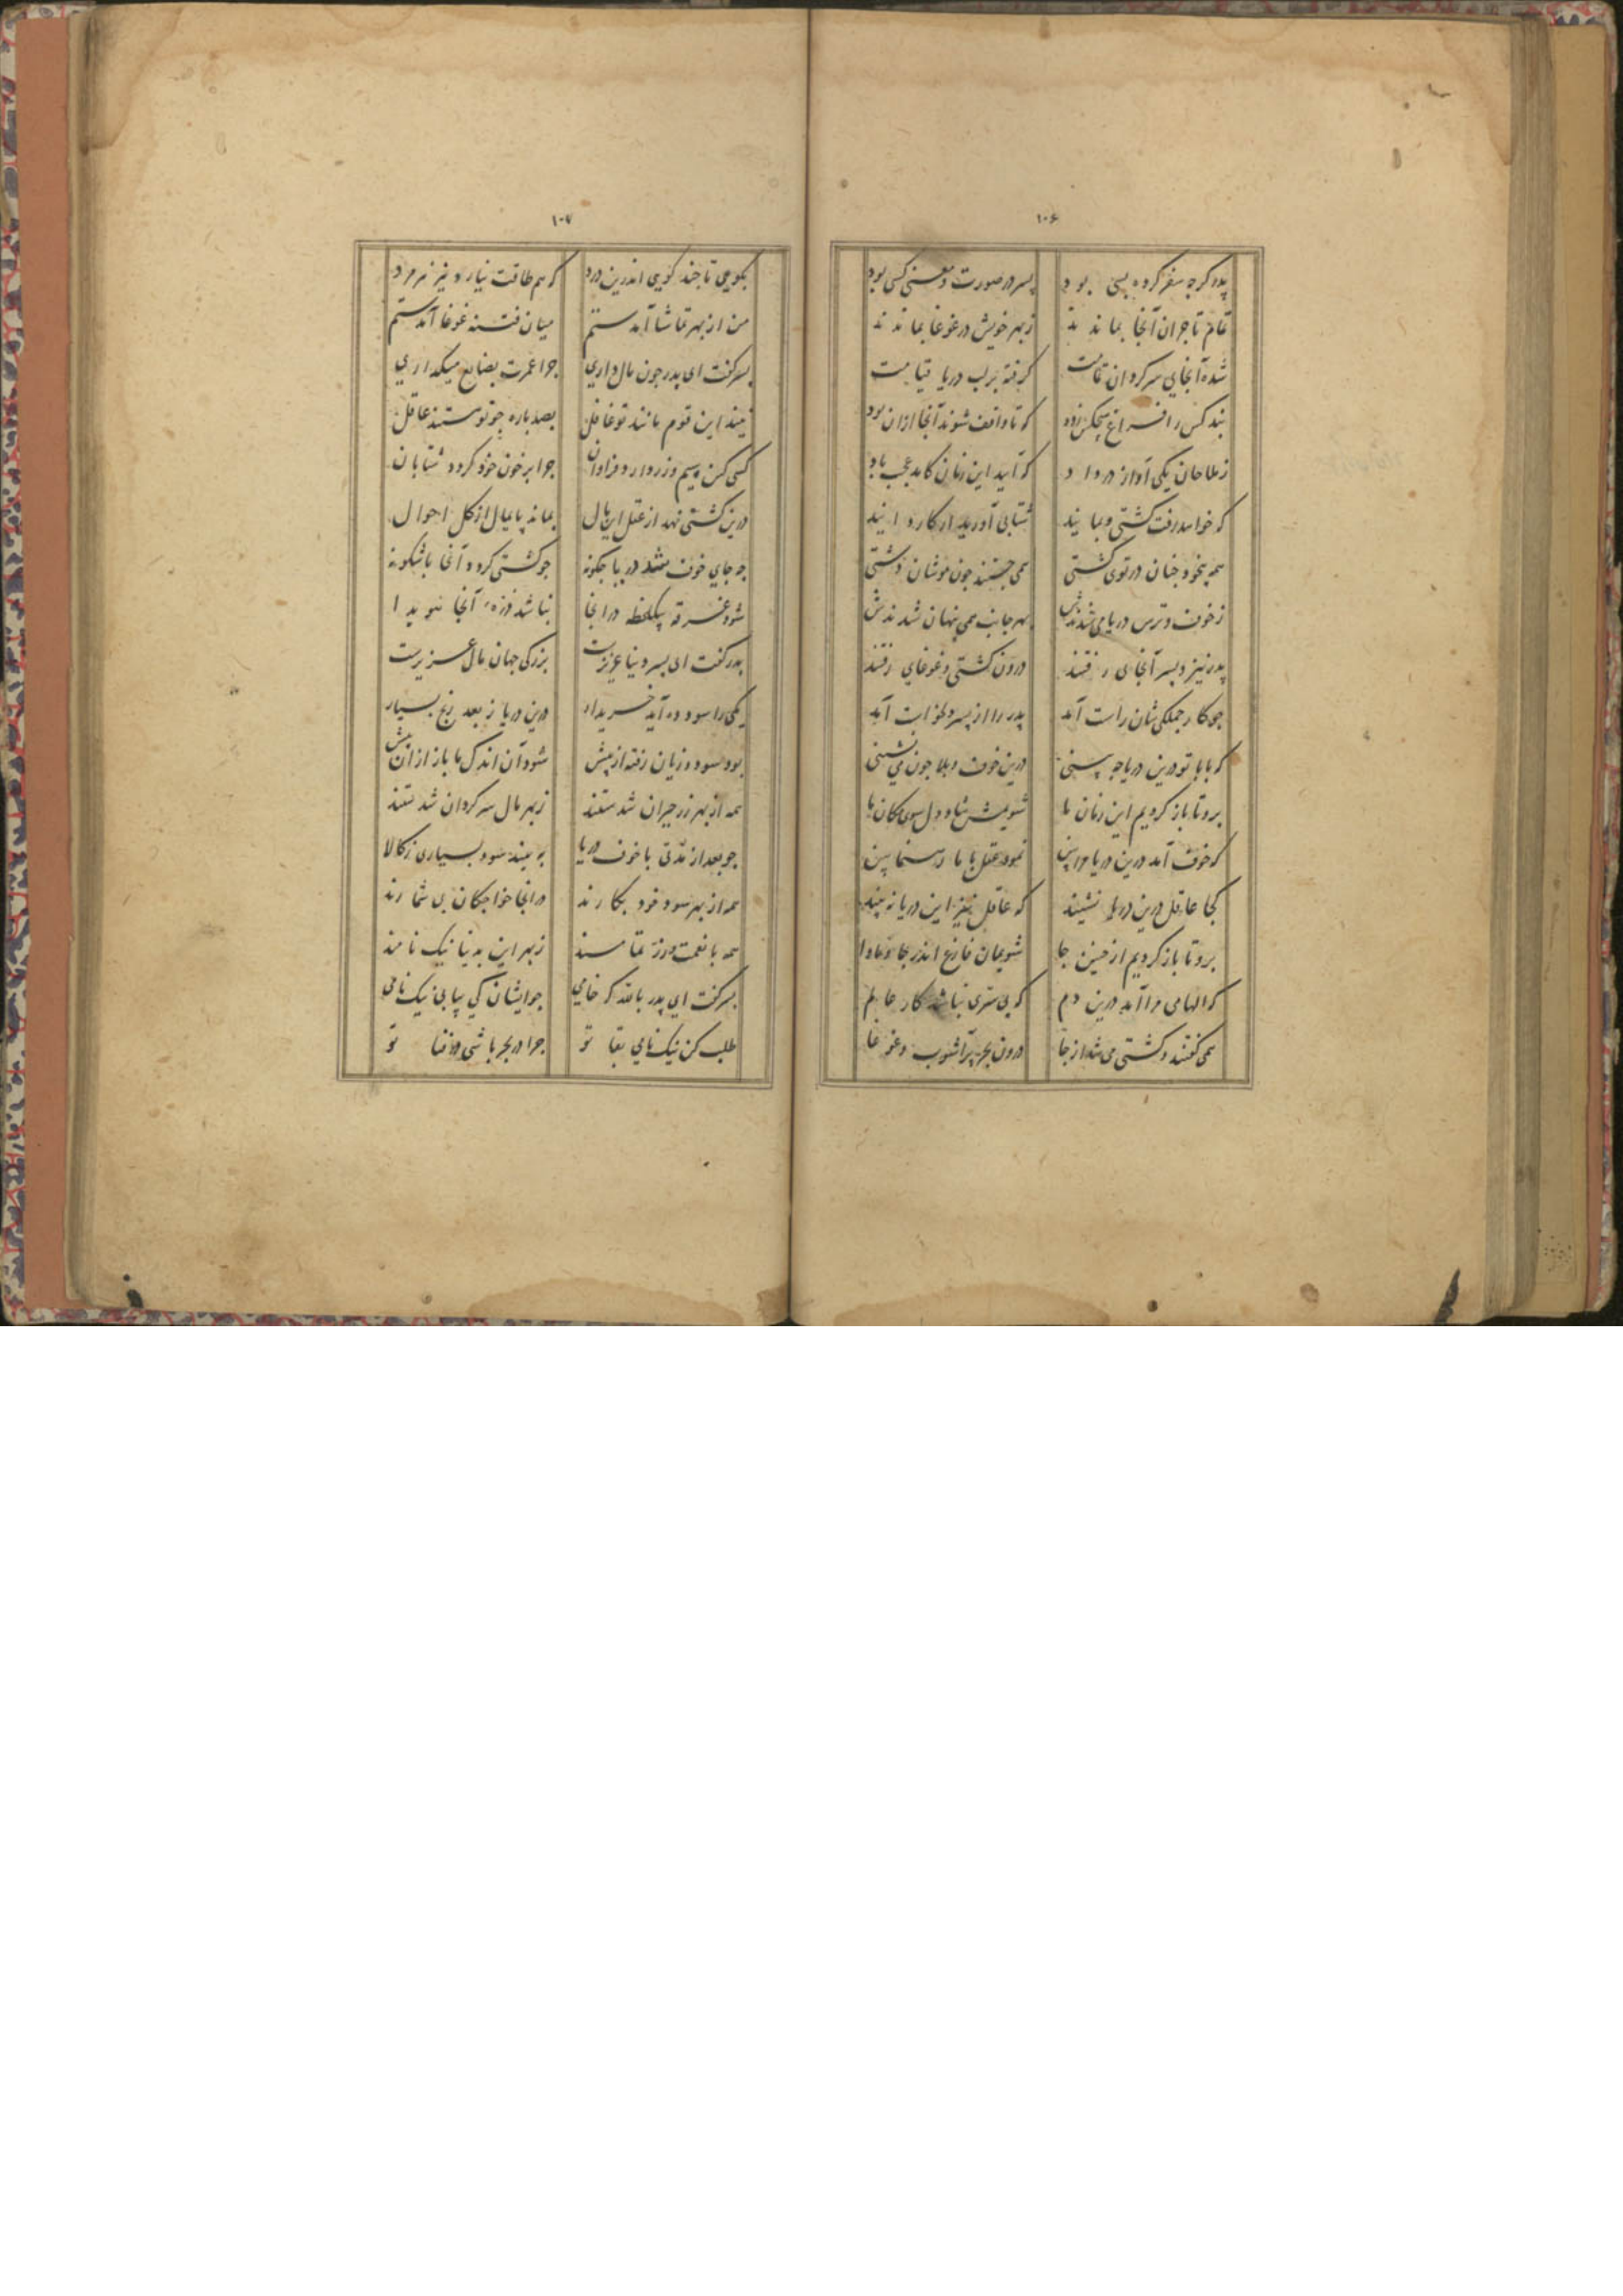 ۱۰۶
پدر کرچه سفر کرده بسی بود پسر در صورت و معنی کسی بود
تمام تاجران آنجا بماندند ز بهر خویش در غوغا بماندند
شده آنجایی سرکردان تمامت کرفته بر لب دریا قیامت
نبد کس را فراغ هیچکس زود که تا واقف شوند آنجا ازان بود
ز ملاحان یکی آواز در داد که آیید این زمان کامد عجب باد
که خواهد رفت کشتی و بمانید شتابی آورید ار کاردانید
همه بیخود چنان در توی کشتی همی جستند چون موشان دشتی
ز خوف و ترس دریا می شدندش بهر جانب همی پنهان شدندش
پدر نیز و پسر آنجای رفتند درون کشتی و غوغای رفتند
چو کار جملکی شان راست آمد پدر را از پسر درخواست آمد
که بابا تو درین دریا چه بینی درین خوف و بلا چون می نشینی
برو تا باز کردیم این زمان ما شویمش شاد دل سوی مکان ما
که خوف آمد درین دریا مرا پس نمود عقل بابا رهنما پس
کجا عاقل درین دریا نشیند که عاقل نیز این دریا نه بیند
برو تا باز کردیم از چنین جا شویمان فارغ اندر جا و ماوا
که الهامی مرا آمد درین دم که بی سری نباشد کار عالم
همی کفتند و کشتی می شد از جا درون بحر پرآشوب و غوغا
۱۰۷
بکو می تا چند کویی اندرین درد که هم طاقت نیارد نیز نر مرد
من از بهر تماشا آمدستم میان فتنه غوغا آمدستم
پسر کفت ای پدر چون مال داری چرا عمرت بضایع میکذاری
نیند این قوم مانند تو غافل بصد باره چو تو هستند عاقل
کسی کین سیم و زر دارد فراوان چرا بر خون خود کردد شتابان
درین کشتی نهد از عقل این مال بماند پایمال از کل احوال
چه جای خوف شد دریا چکونه چو کشتی کردد آنجا باشکونه
شود غرقه بیکلحظه در انجا نباشد ذره آنجا هویدا
پدر کفت ای پسر دنیا عزیزست بزرکی جهان مال عزیزست
یکی را سود ده آید خریدار درین دریا ز بعد رنج بسیار
بود سود و زیان رفته از پیش شود آن اندک ما باز ازان بیش
همه از بهر زر حیران شدستند ز بهر مال سرکردان شدستند
چو بعد از مدتی با خوف دریا به بیند سود بسیاری ز کالا
همه از بهر سود خود بکارند در انجا خواجکان بی شمارند
همه با نعمت و زر تمامند ز بهر این بدنیا نیک نامند
پسر کفت ای پدر بالله که خامی چو ایشان کی بیابی نیک نامی
طلب کن نیک نامی بقا تو چرا در بحر باشی در فنا تو